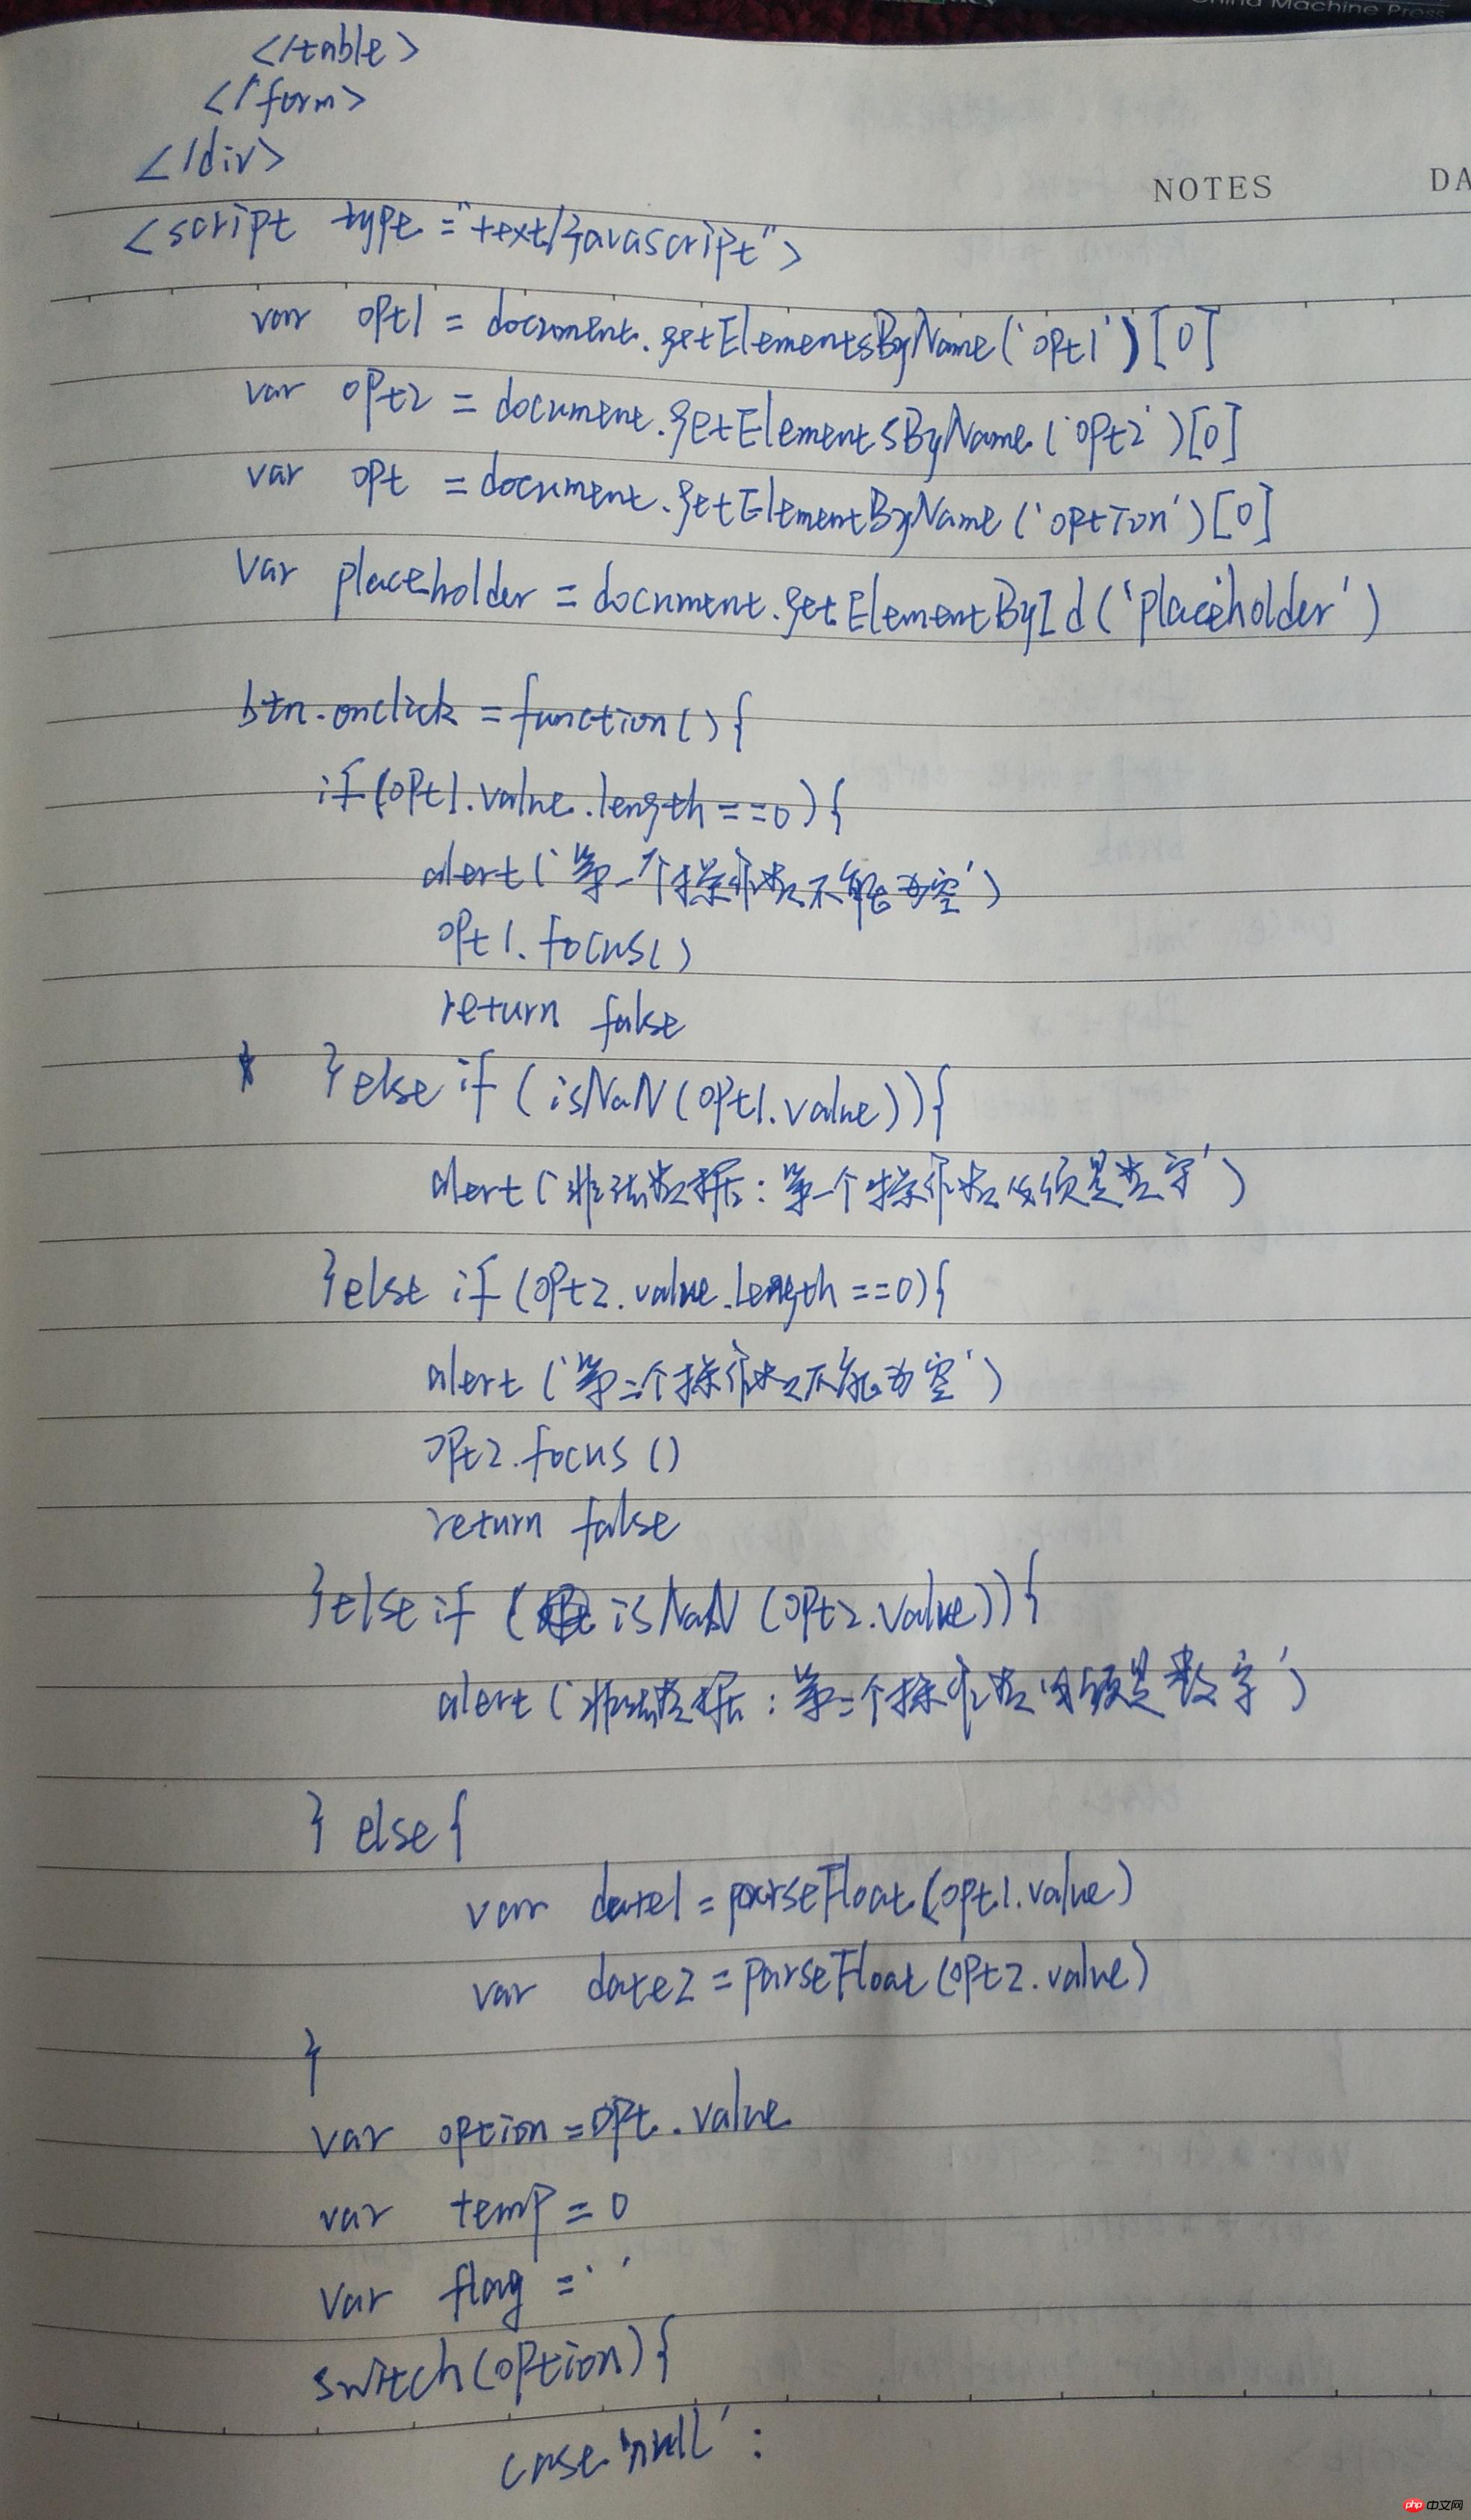 China Machine Press
</table>
</form>
</div>
NOTES
DA
<script type="text/javascript">
var opt1 = document.getElementsByName('opt1')[0]
var opt2 = document.getElementsByName('opt2')[0]
var opt = document.getElementByName('option')[0]
var placeholder = document.getElementById('placeholder')
btn.onclick = function(){
if(opt1.value.length==0){
alert('第一个操作数不能为空')
opt1.focus()
return false
}else if(isNaN(opt1.value)){
alert('非法数据:第一个操作数必须是数字')
}else if(opt2.value.length==0){
alert('第二个操作数不能为空')
opt2.focus()
return false
}else if(isNaN(opt2.value)){
alert('非法数据:第二个操作数必须是数字')
} else{
var date1=parseFloat(opt1.value)
var date2=parseFloat(opt2.value)
}
var option=opt.value
var temp=0
var flag=' '
switch(option){
case 'null':
php 中文网